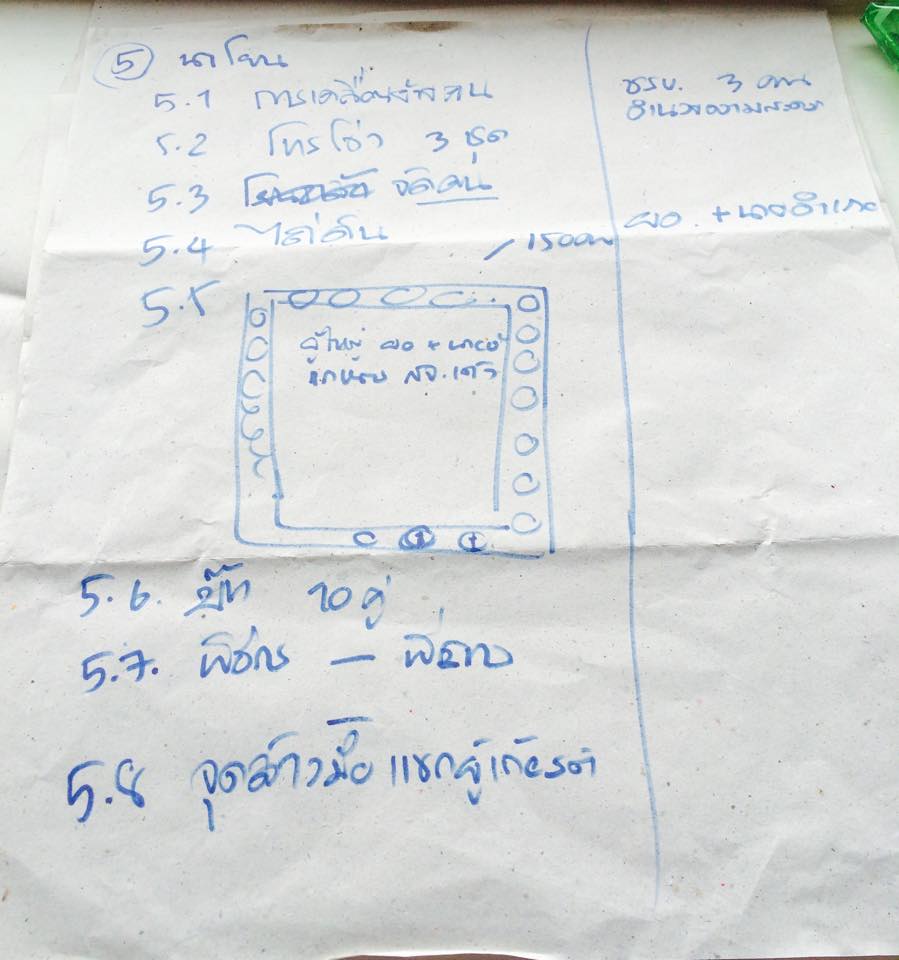 ⑤ นาโยน
5.1 การเคลื่อนย้ายคน
ชรบ. 3 คน
อำนวยความสะดวก
5.2 โทรโข่ง 3 ชุด
5.3 จัดคน
5.4 ไต่ดิน
/ 150 คน
ผอ. + นายอำเภอ
5.5
ผู้ใหญ่ ผอ + นายอำ
5.6. บู๊ท 10 คู่
5.7. พิธีกร —
5.8 จุดล้างมือ แขกผู้เกียรติ